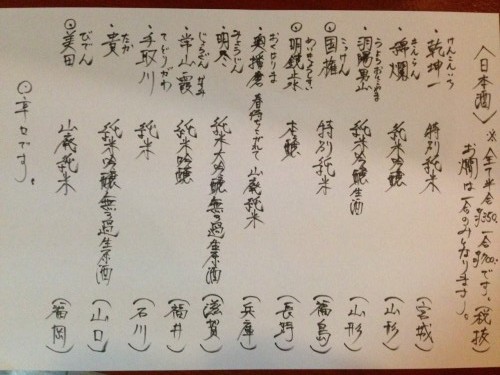 〈日本酒〉※全て半合350、一合700、です。(税抜)
お燗は一合のみとなります。
けんこんいち
・乾坤一 特別純米 (宮城)
・絢爛 純米吟醸 (山形)
うようおとこやま
・羽陽男山 純米吟醸生酒 (山形)
こっけん
◎国権 特別純米 (福島)
◎明鏡止水 本醸 (長野)
おくはりま
・奥播磨 春待ちこがれて 山廃純米 (兵庫)
・明尽 純米大吟醸無ろ過生原酒 (滋賀)
じょうざん かすみ
・常山霞 純米吟醸 (福井)
てどりがわ
・手取川 純米 (石川)
たか
・貴 純米吟醸無ろ過生原酒 (山口)
びでん
◎美田 山廃純米 (福岡)
◎辛口です。